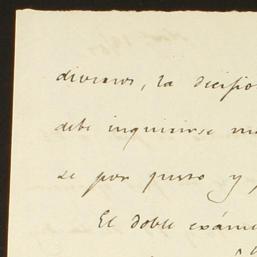 diversos, la decisio
debe inquirirse
se por justo y
El doble exám